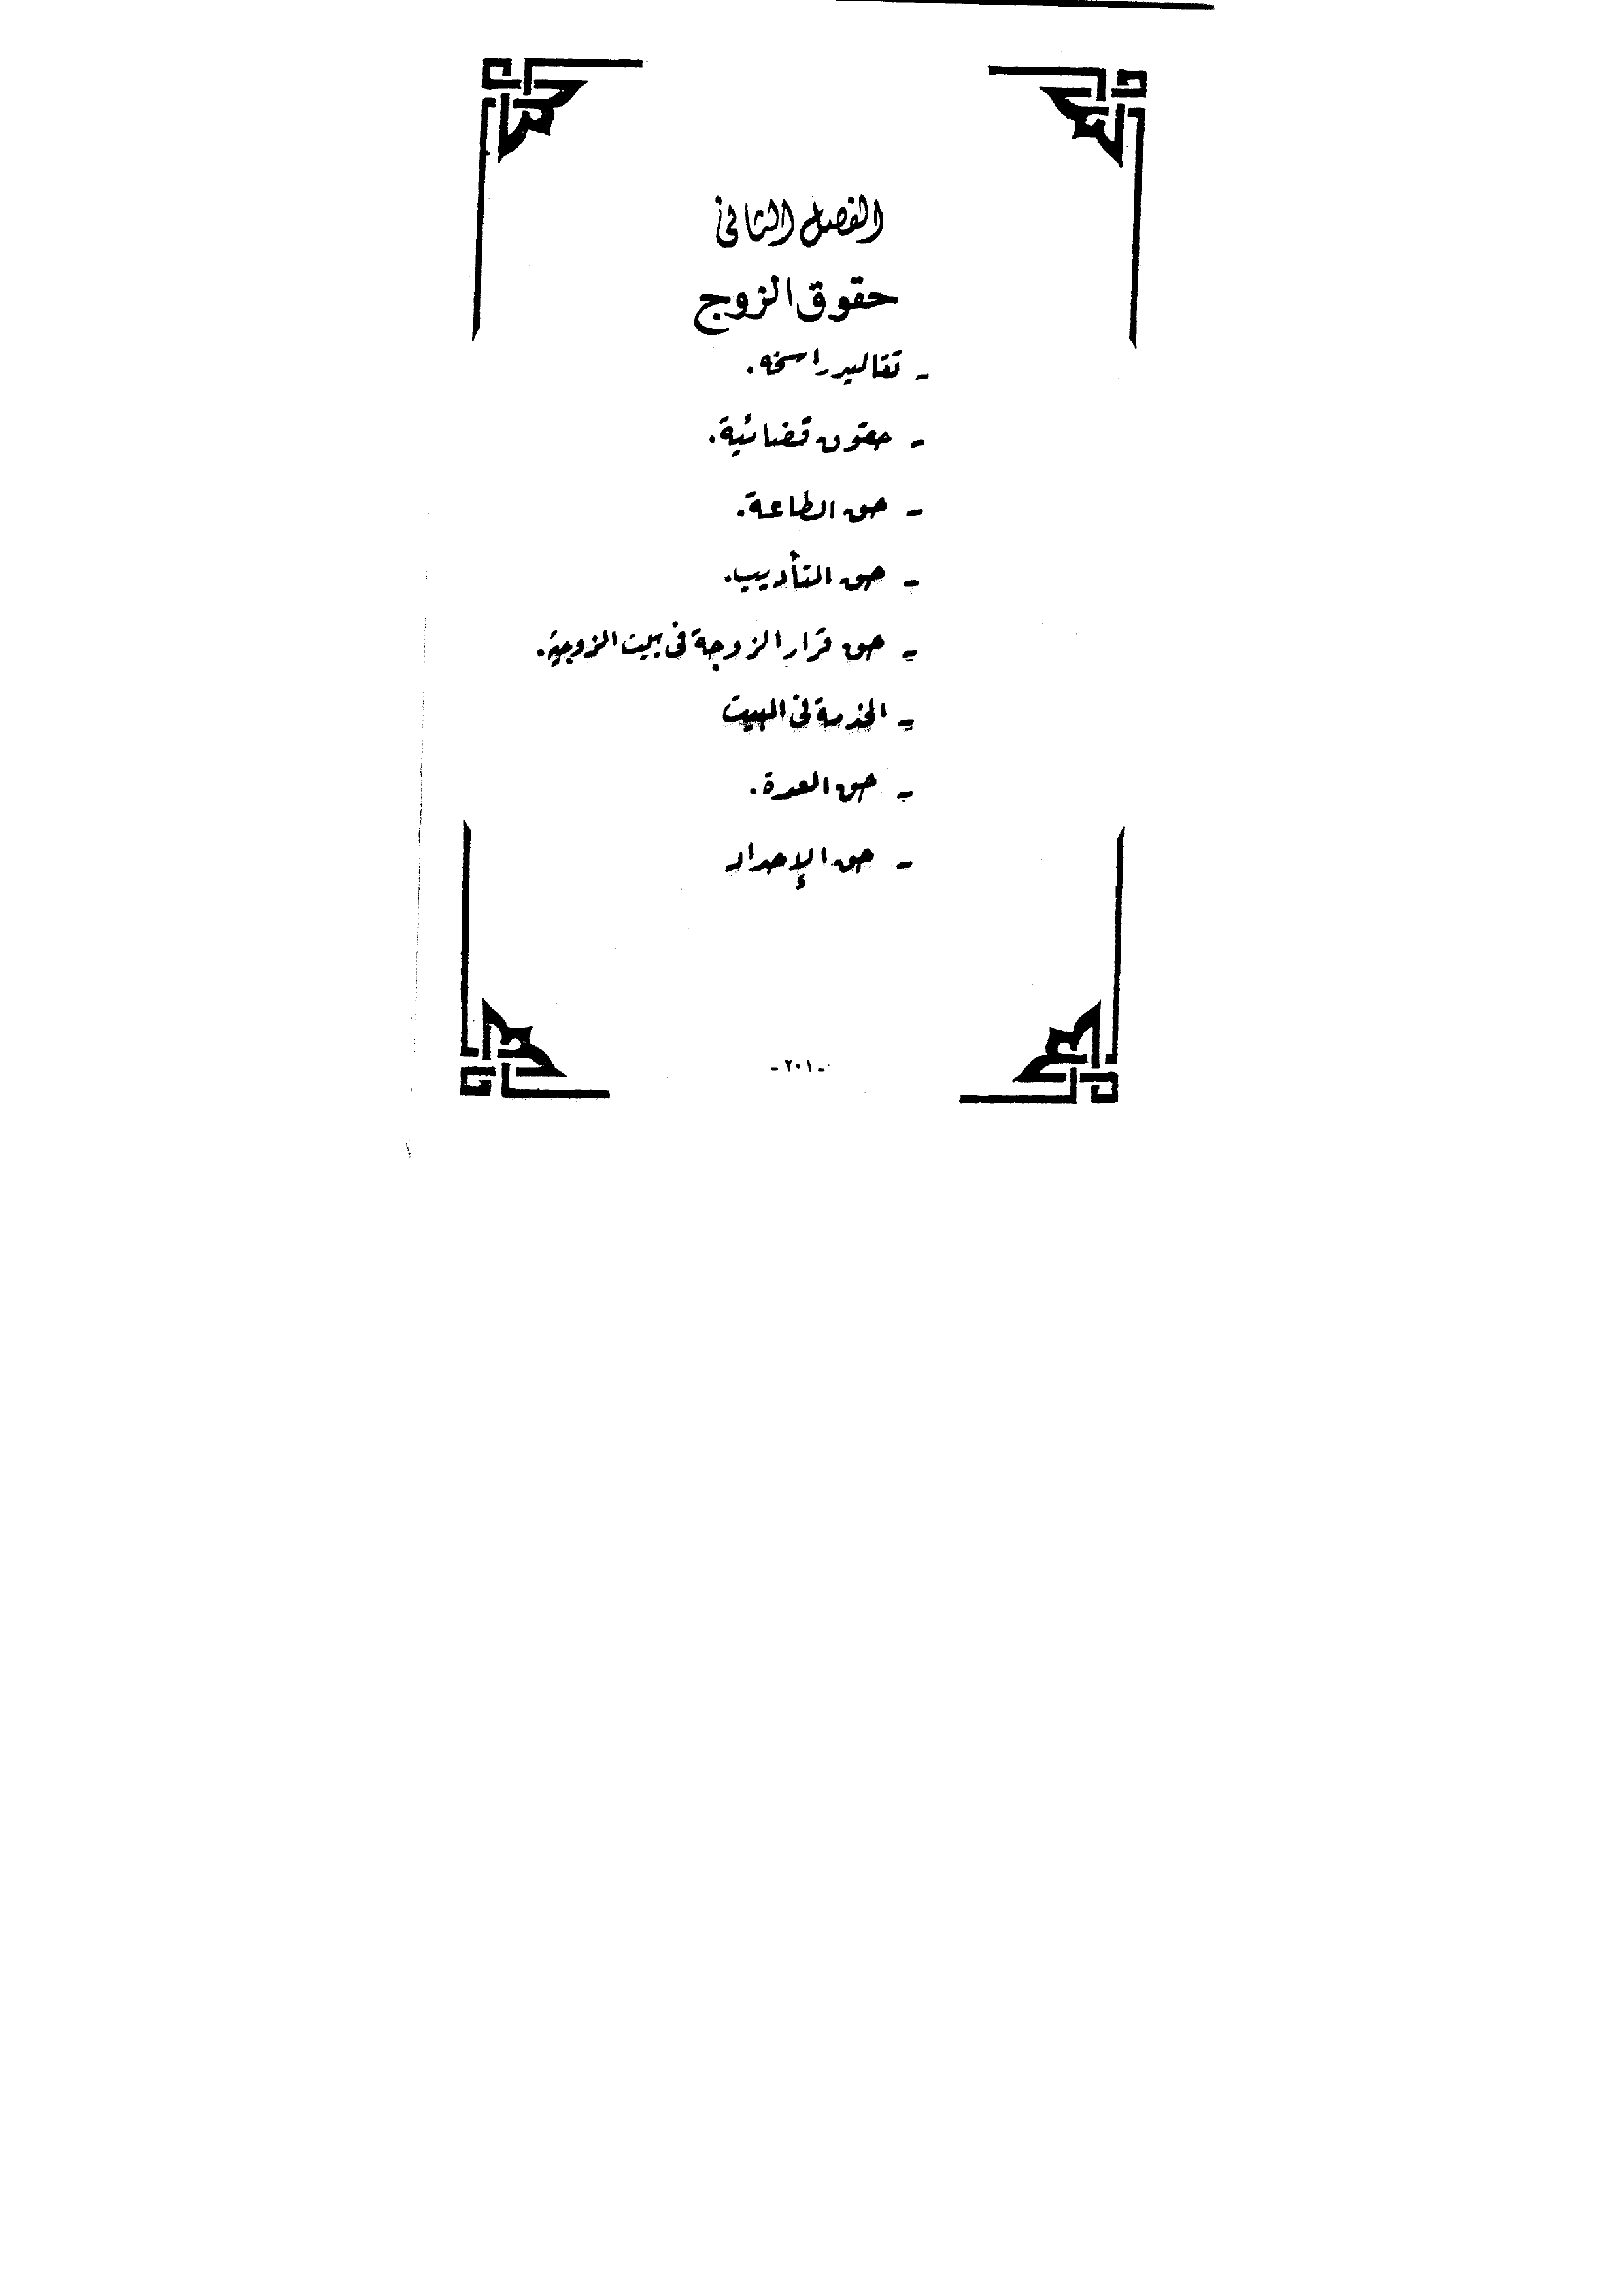 الفصل الثانى
حقوق الزوج
- تقاليد راسخه .
- حقوق قضائية .
- حق الطاعة .
- حق التأديب .
- حق قرار الزوجة فى بيت الزوجية .
- الخدمة فى البيت
- حق العدة .
- حق الإحداد
- ٢٠١ -